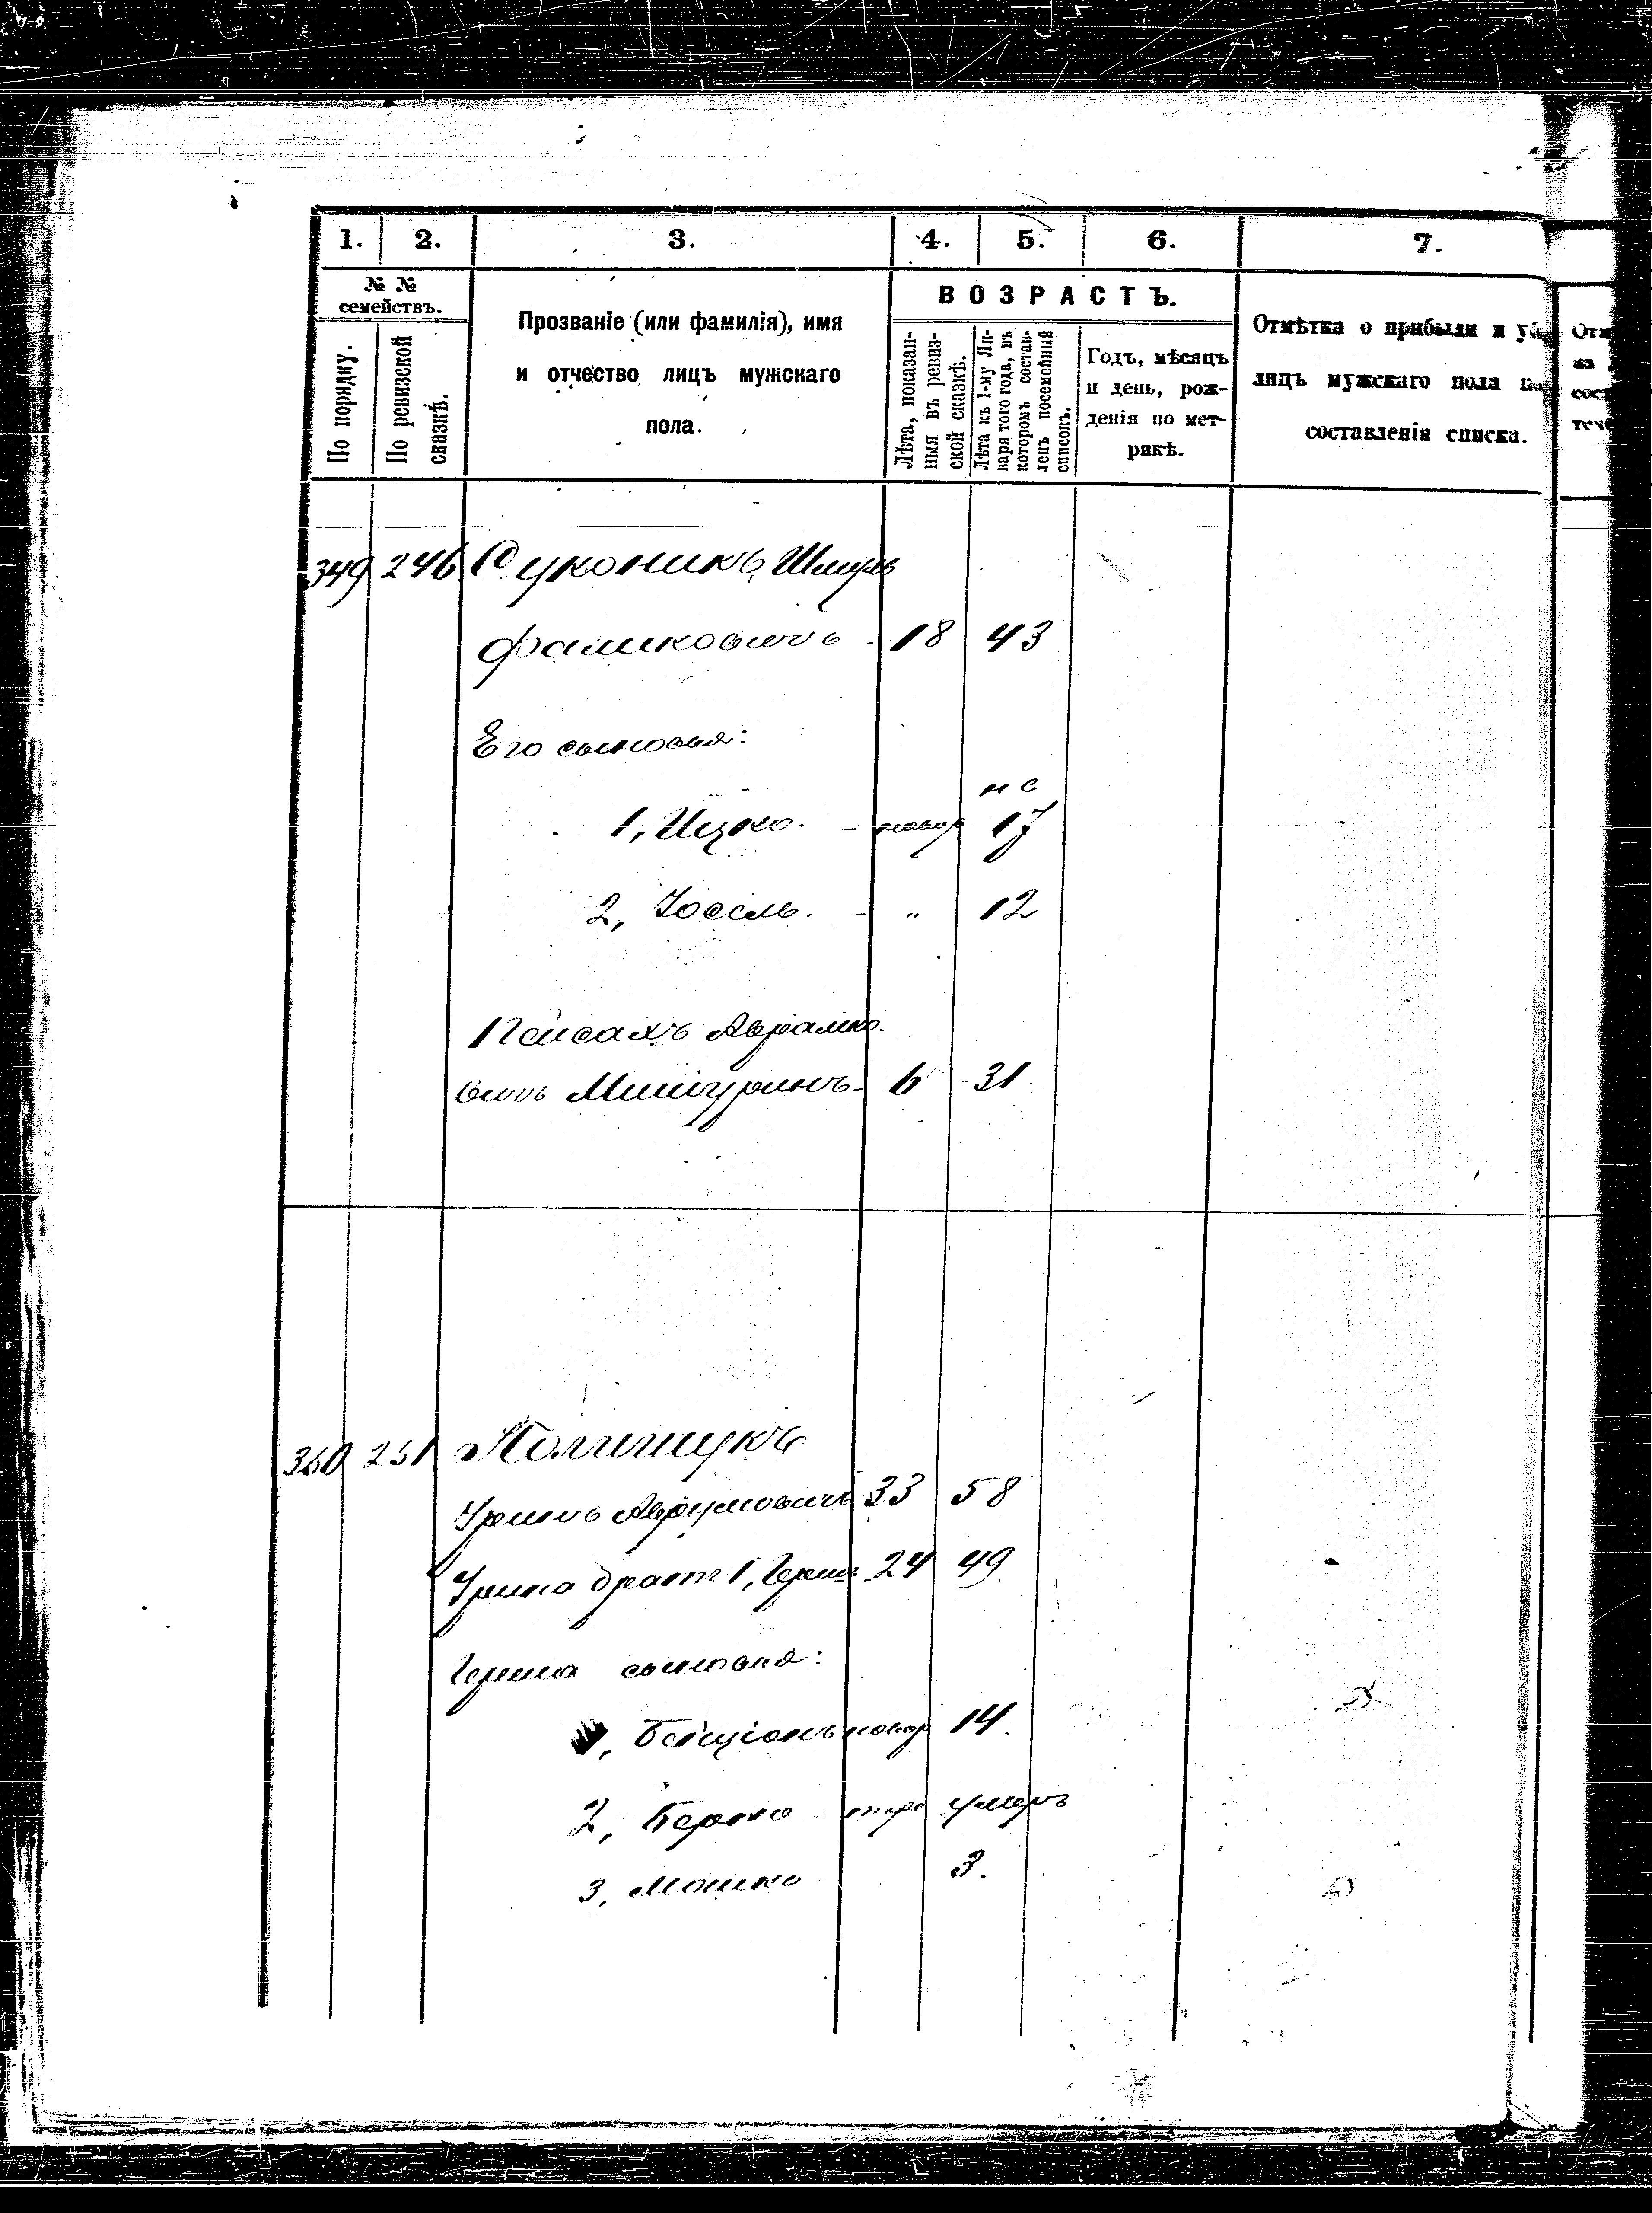 1. 2. 3. 4. 5. 6. 7.
№ №
семействъ.
По порядку.
По ревизской
сказкѣ.
Прозваніе (или фамилія), имя
и отчество лицъ мужскаго
пола.
ВОЗРАСТЪ.
Лѣта, показан-
ныя въ ревиз-
ской сказкѣ.
Лѣта къ 1-му Ян-
варя того года, въ
которомъ состав-
ленъ посемейный
списокъ.
Годъ, мѣсяцъ
и день, рож-
денія по мет-
рикѣ.
Отмѣтка о прибыли и
лицъ мужскаго пола
составленія списка.
349 246 Суконикъ Шмуль
Фаликовичъ 18 43
Его сыновья:
1, Ицко. - новор 17
2, Іоссль. - " 12
Пейсахъ Аврамко-
вичъ Мишуринъ - 6 31
Полищукъ
Уринъ Аврумовичъ 33 58
брат 1, Гершъ 24 49
Герша сыновья:
, Бенціонъ новор 14.
2, Берко - умеръ
3, Мошко 3.